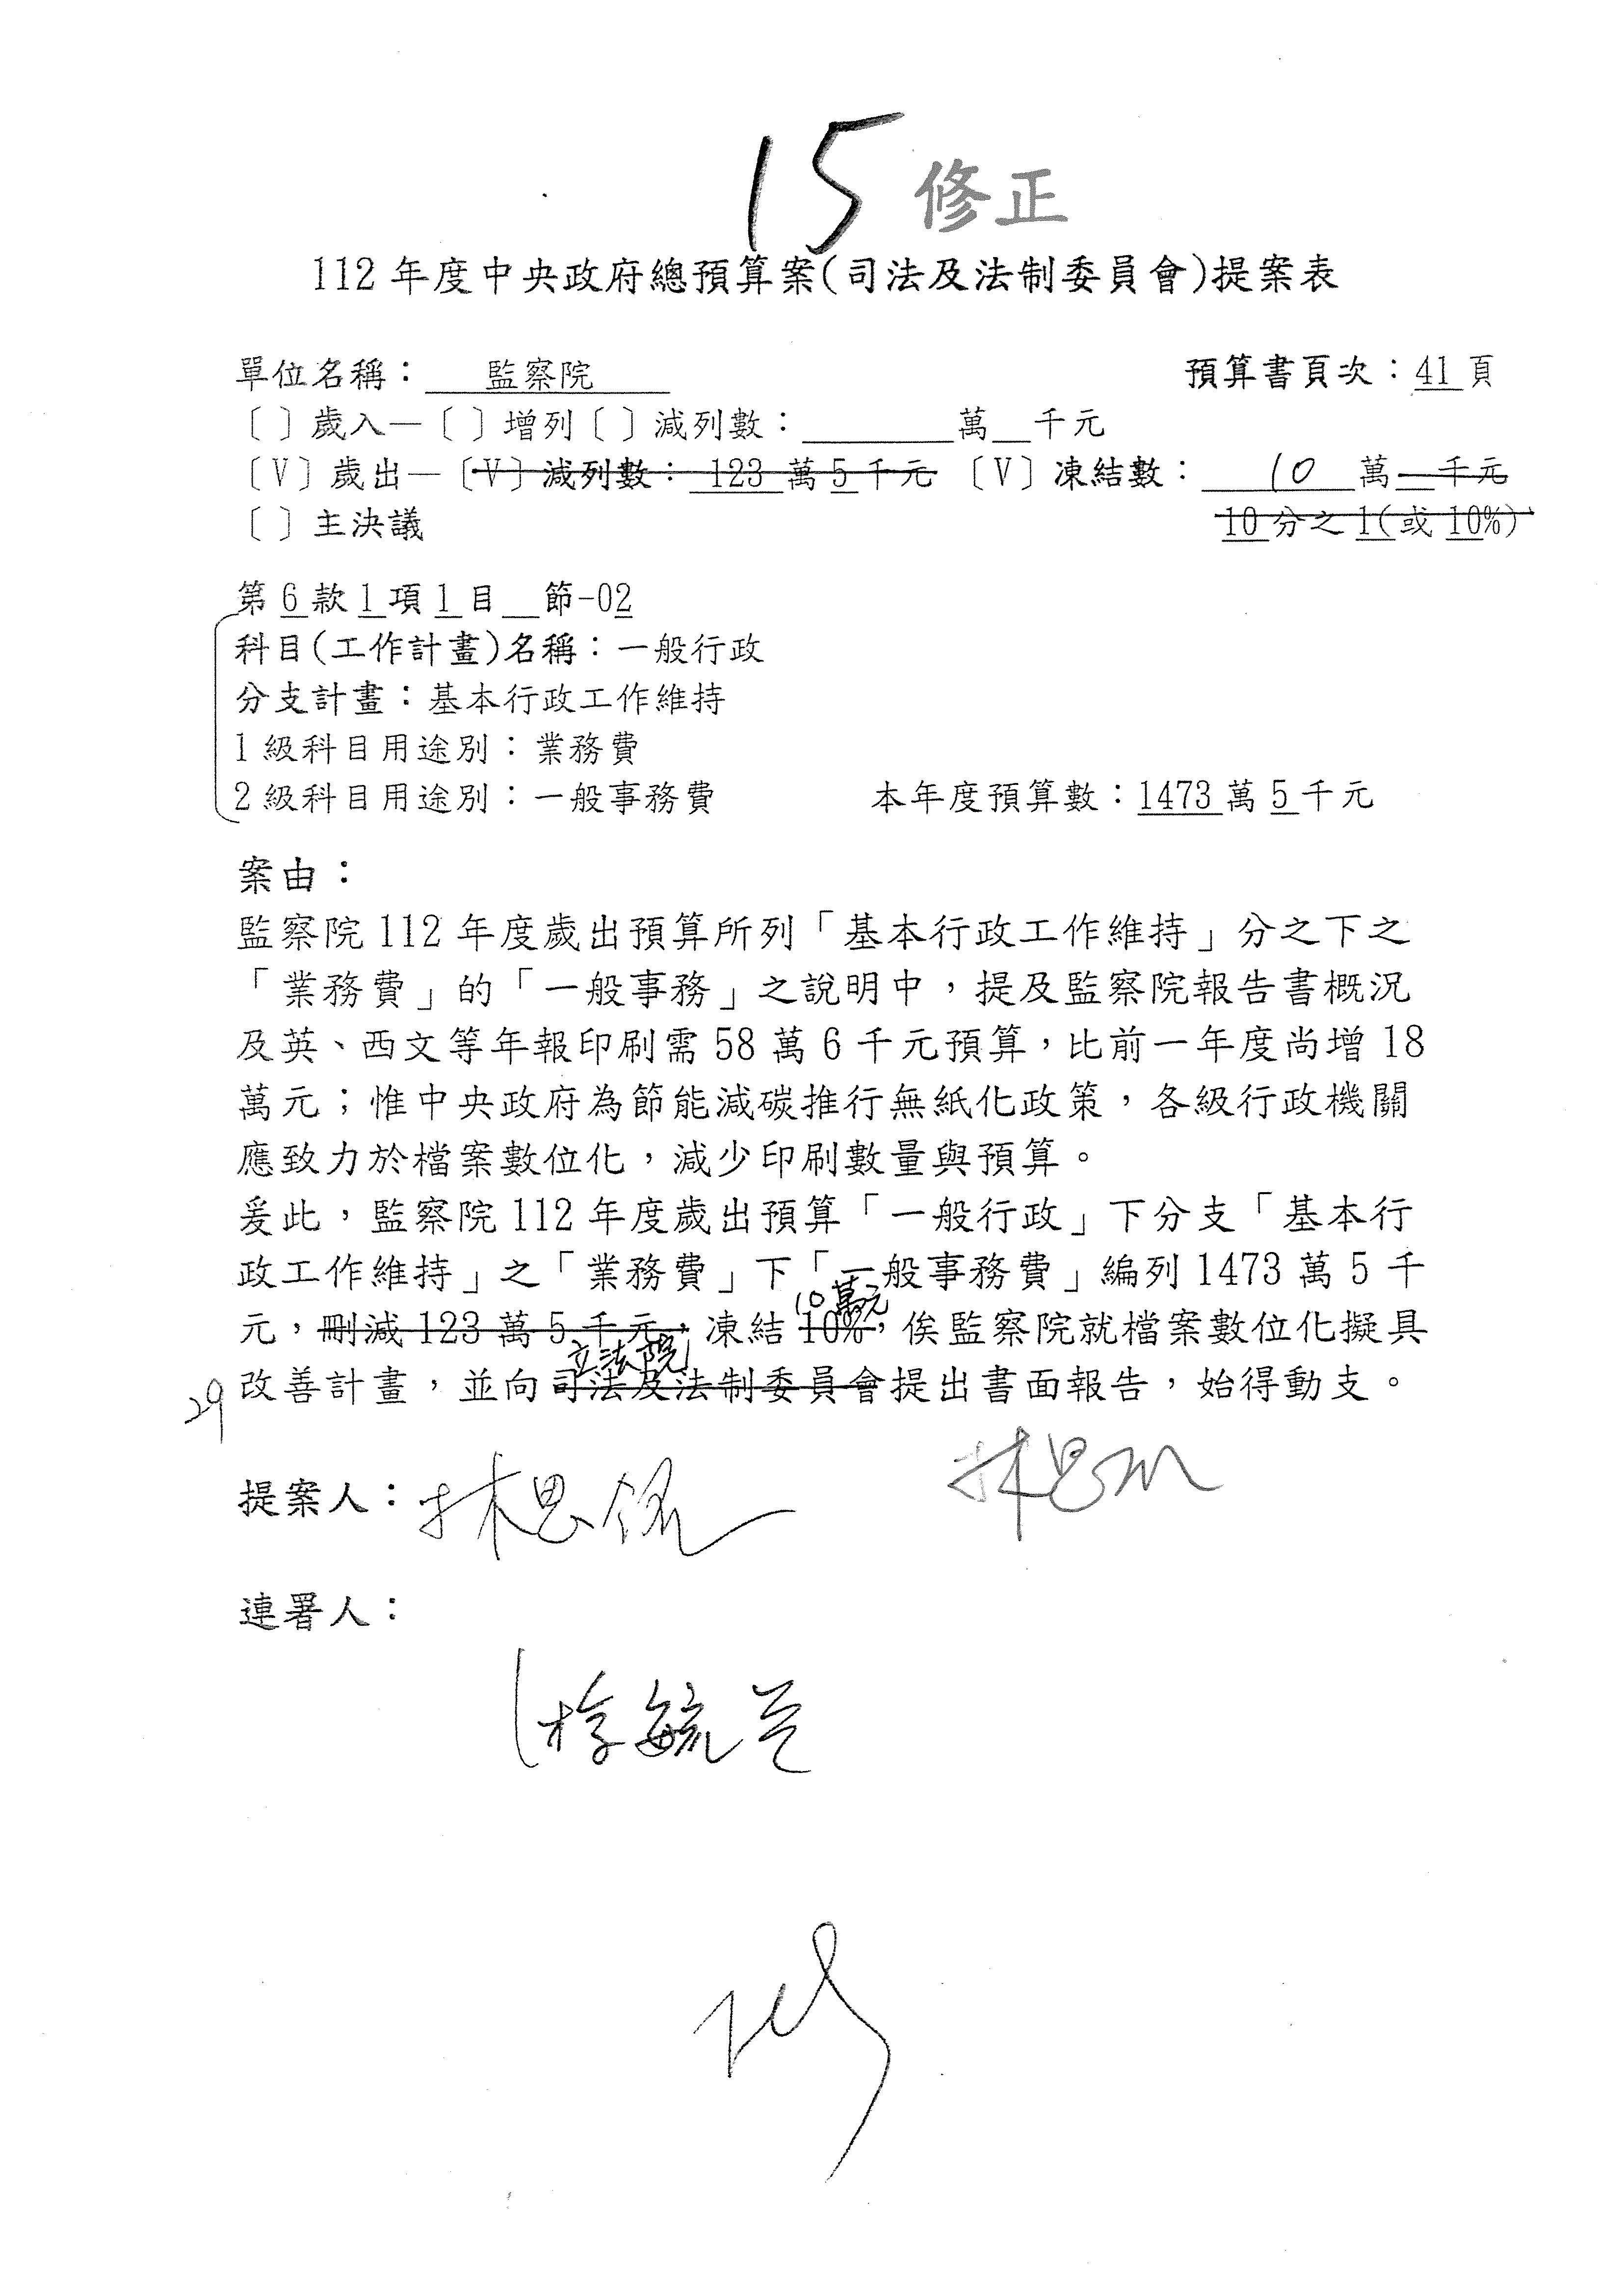 15 修正
112年度中央政府總預算案(司法及法制委員會)提案表
單位名稱：監察院 預算書頁次：41頁
〔 〕歲入—〔 〕增列〔 〕減列數：____萬__千元
〔V〕歲出—〔V〕減列數：123萬5千元 〔V〕凍結數：10萬__千元
〔 〕主決議 10分之1(或10%)
第6款1項1目__節-02
科目(工作計畫)名稱：一般行政
分支計畫：基本行政工作維持
1級科目用途別：業務費
2級科目用途別：一般事務費 本年度預算數：1473萬5千元
案由：
監察院112年度歲出預算所列「基本行政工作維持」分之下之
「業務費」的「一般事務」之說明中，提及監察院報告書概況
及英、西文等年報印刷需58萬6千元預算，比前一年度尚增18
萬元；惟中央政府為節能減碳推行無紙化政策，各級行政機關
應致力於檔案數位化，減少印刷數量與預算。
爰此，監察院112年度歲出預算「一般行政」下分支「基本行
政工作維持」之「業務費」下「一般事務費」編列1473萬5千
10萬元
元，刪減123萬5千元，凍結10%，俟監察院就檔案數位化擬具
立法院
改善計畫，並向司法及法制委員會提出書面報告，始得動支。
29
提案人：林思銘
連署人：
游毓蘭